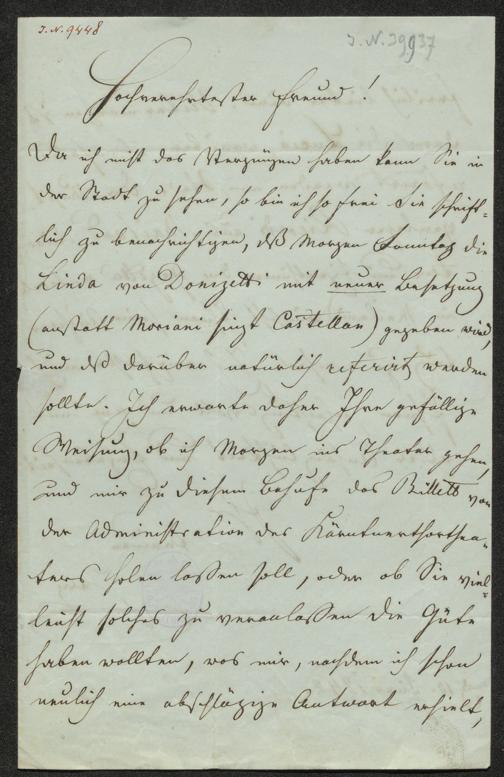 J. N. 9448
J. N. 39937
Hochverehrtester Freund!
Da ich nicht das Vergnügen haben kann Sie in
der Stadt zu sehen, so bin ich so frei Sie schrift-
lich zu benachrichtigen, dß Morgen Sonntag die
Linda von Donizetti mit neuer Besetzung
(anstatt Moriani singt Castellan) gegeben wird,
und dß darüber natürlich referirt werden
sollte. Ich erwarte daher Ihre gefällige
Weisung, ob ich Morgen ins Theater gehen,
und mir zu diesem Behufe das Billett von
der Administration des Kärntnerthorthea-
ters holen lassen soll, oder ob Sie viel-
leicht solches zu veranlassen die Güte
haben wollten, was mir, nachdem ich schon
neulich eine abschlägige Antwort erhielt,